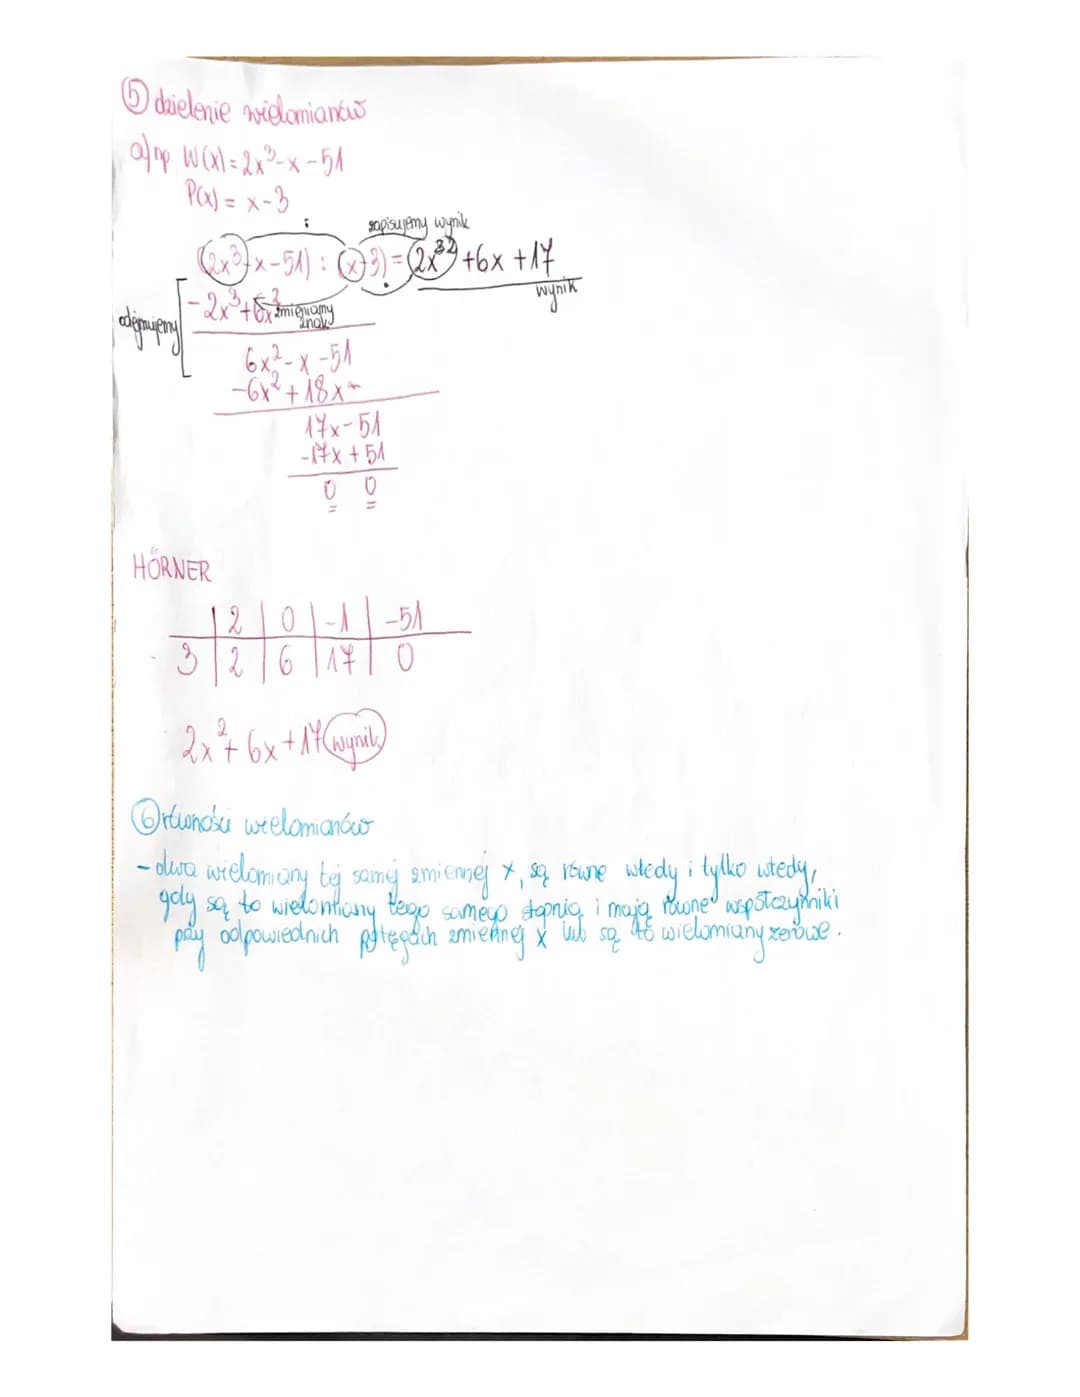 ⑤ dzielenie wielomianów
a) np. W(x) = 2x³ - x - 51
P(x) = x - 3
: zapisujemy wynik
(2x³ - x - 51) : (x - 3) = 2x² + 6x + 17
wynik
odejmujemy - 2x³ + 6x² zmieniamy znak
6x² - x - 51
-6x² + 18x
17x - 51
-17x + 51
0 0
HÖRNER
2 | 0 | -1 | -51
3 | 2 | 6 | 17 | 0
2x² + 6x + 17 wynik
⑥ równości wielomianów
- dwa wielomiany tej samej zmiennej x, są równe wtedy i tylko wtedy,
gdy są to wielomiany tego samego stopnia i mają równe współczynniki
przy odpowiednich potęgach zmiennej x lub są to wielomiany zerowe.